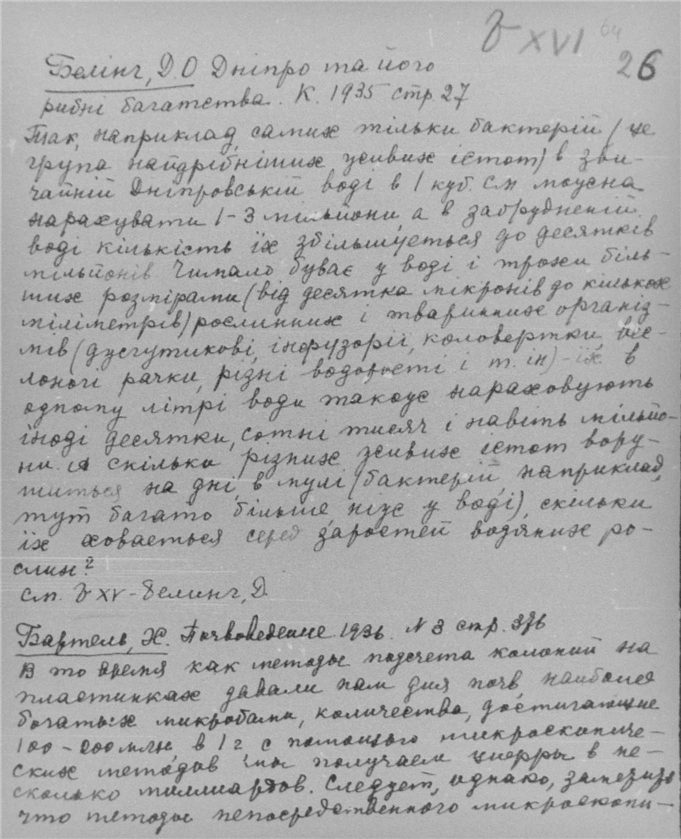 b XVI
26
Белінг, Д.О Дніпро та його
рибні багатства. К. 1935 стр 27
Так, наприклад, самих тільки бактерій (це
група найдрібніших живих істот) в зви-
чайній Дніпровській воді в 1 куб. см можна
нарахувати 1-3 мільйони а в забрудненій
воді кількість їх збільшується до десятків
мільйонів. Чимало буває у воді і трохи біль-
ших розмірами (від десятка мікронів до кількох
міліметрів) рослинних і тваринних організ-
мів (джгутикові, інфузорії, коловертки, вес-
лоногі рачки, різні водорості і т. ін) - їх в
одному літрі води також нараховують
іноді десятки, сотні тисяч і навіть мільйо-
ни. А скільки різних живих істот вору-
шиться на дні в мулі (бактерій наприклад,
тут багато більше ніж у воді), скільки
їх ховається серед заростей водяних ро-
слин?
см. b XV - Белинг, Д.
Бартель, Х. Почвоведение 1936. N 3 стр. 376
В то время как методы подсчета колоний на
пластинках давали нам для почв наиболее
богатых микробами, количества, достигающие
100-200 млн в 1 г с помощью микроскопиче-
ских методов мы получаем цифры в не-
сколько миллиардов. Следует, однако, заметить
что методы непосредственного микроскопи-